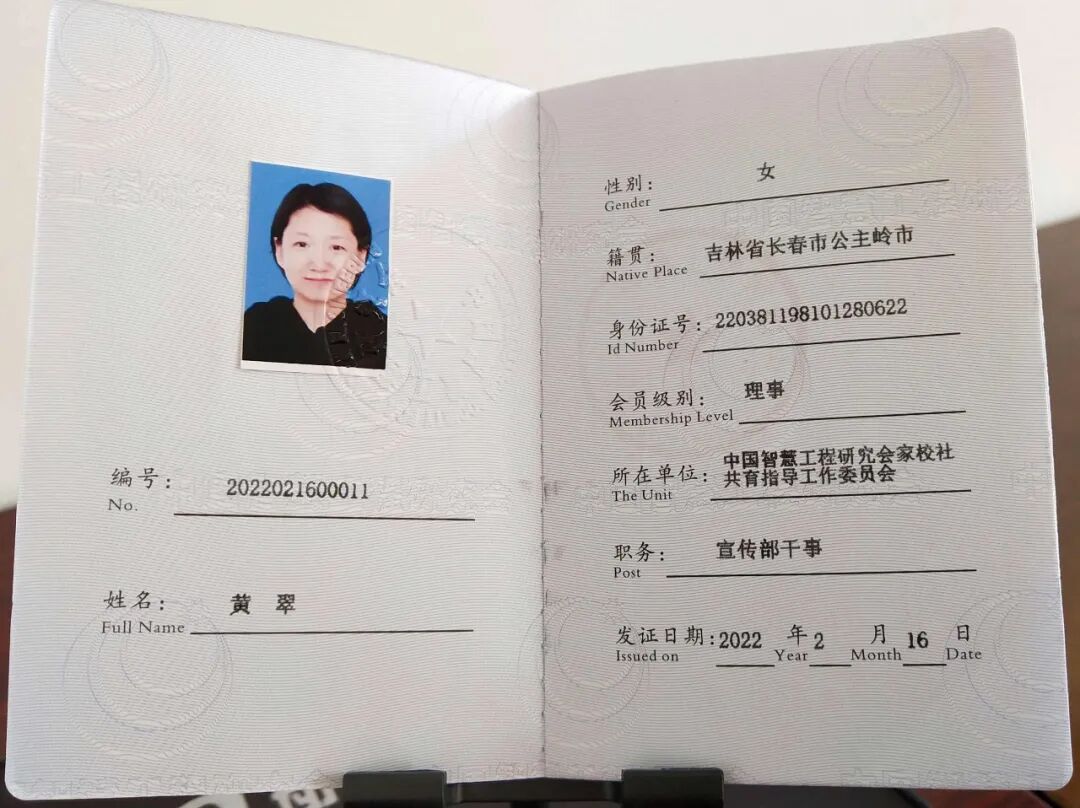 编号: 2022021600011
No.
姓名: 黄 翠
Full Name
性别: 女
Gender
籍贯: 吉林省长春市公主岭市
Native Place
身份证号: 220381198101280622
Id Number
会员级别: 理事
Membership Level
所在单位: 中国智慧工程研究会家校社
The Unit 共育指导工作委员会
职务: 宣传部干事
Post
发证日期: 2022 年 2 月 16 日
Issued on Year Month Date